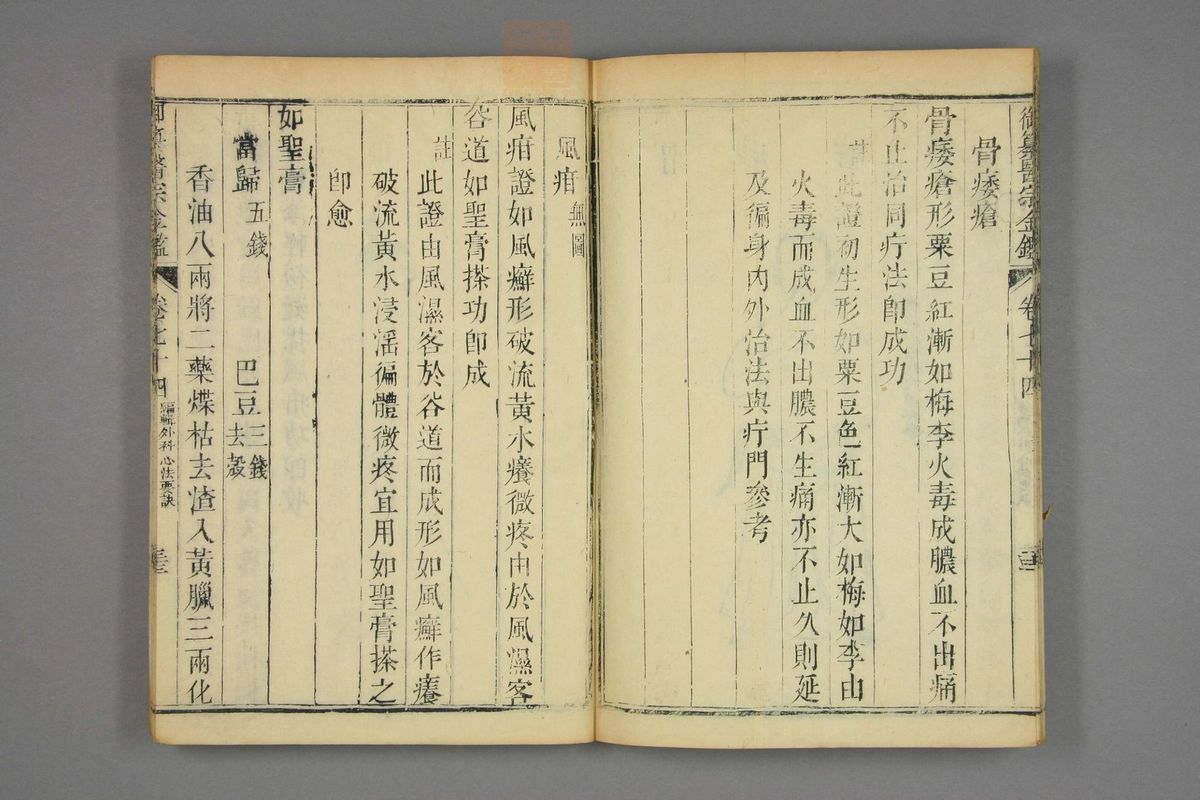 御纂醫宗金鑑 卷七十四
骨痿瘡
骨痿瘡形粟豆紅漸如梅李火毒成膿血不出痛
不止治同疔法即成功
註此證初生形如粟豆色紅漸大如梅如李由
火毒而成血不出膿不生痛亦不止久則延
及徧身內外治法與疔門參考
風疳 無圖
風疳證如風癬形破流黃水癢微疼由於風濕客
谷道如聖膏搽功即成
註此證由風濕客於谷道而成形如風癬作癢
破流黃水浸淫徧體微疼宜用如聖膏搽之
即愈
如聖膏
當歸五錢 巴豆三錢去殼
香油八兩將二藥煠枯去渣入黃臘三兩化
御纂醫宗金鑑 卷七十四 編輯外科心法要訣